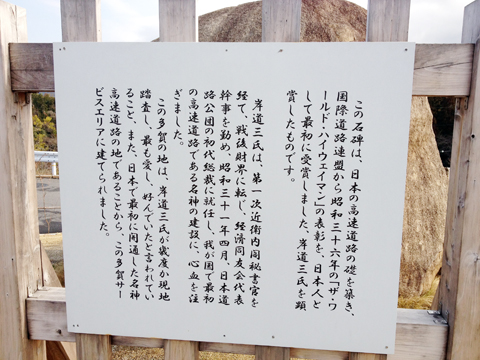 この石碑は、日本の高速道路の礎を築き、
国際道路連盟から昭和三十六年の「ザ・ワ
ールド・ハイウェイマン」の表彰を、日本人と
して最初に受賞しました、岸道三氏を顕
賞したものです。
岸道三氏は、第一次近衛内閣秘書官を
経て、戦後財界に転じ、経済同友会代表
幹事を勤め、昭和三十一年四月、日本道
路公団の初代総裁に就任し、我が国で最初
の高速道路である名神の建設に、心血を注
ぎました。
この多賀の地は、岸道三氏が幾度か現地
踏査し、最も愛し、好んでいたと言われてい
ること、また、日本で最初に開通した名神
高速道路の地であることから、この多賀サー
ビスエリアに建てられました。